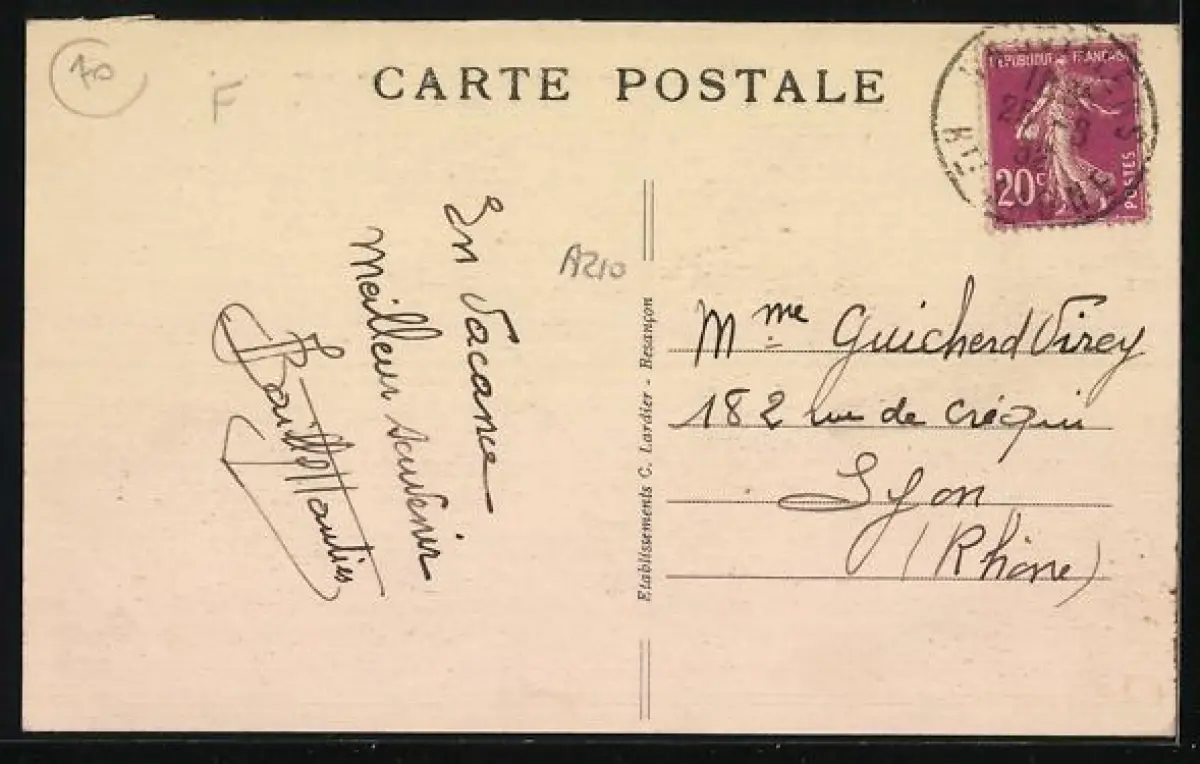 70
F
CARTE POSTALE
REPUBLIQUE FRANÇAISE
20c
POSTES
En Vacance
Meilleur souvenir
A210
Etablissements C. Lardier - Besançon
Mme Guicherd Virey
182 rue de Créqui
Lyon
(Rhône)